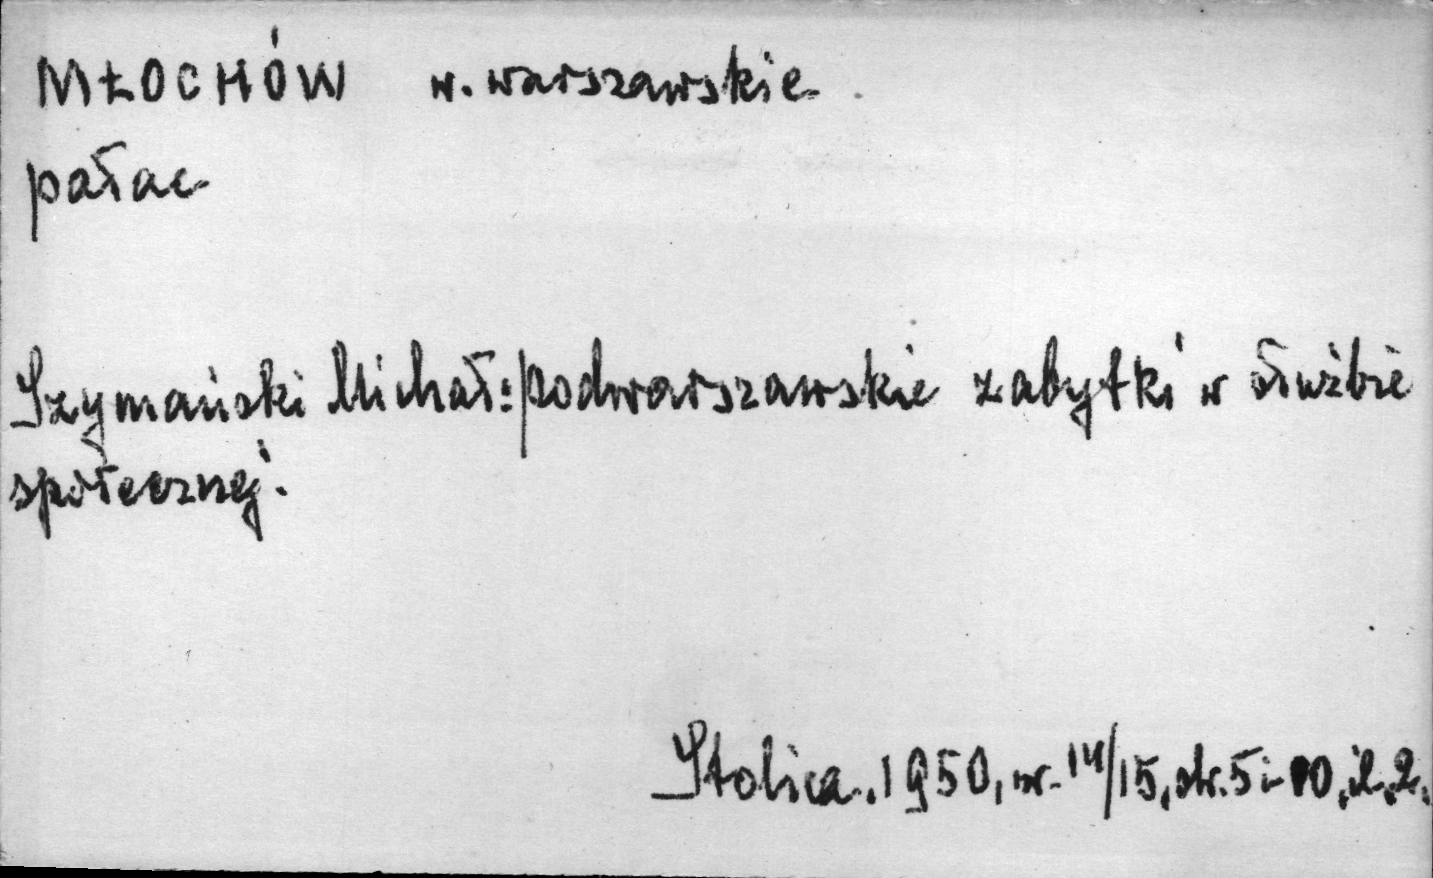 MŁOCHÓW w. warszawskie
pałac
Szymański Michał: podwarszawskie zabytki w służbie
społecznej.
Stolica. 1950, nr. 14/15, str. 5 i 10, il. 2.